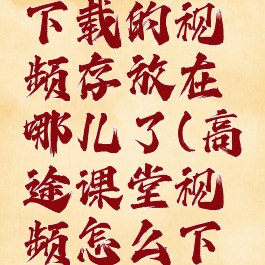 下载的视
频存放在
哪儿了(高
途课堂视
频怎么下